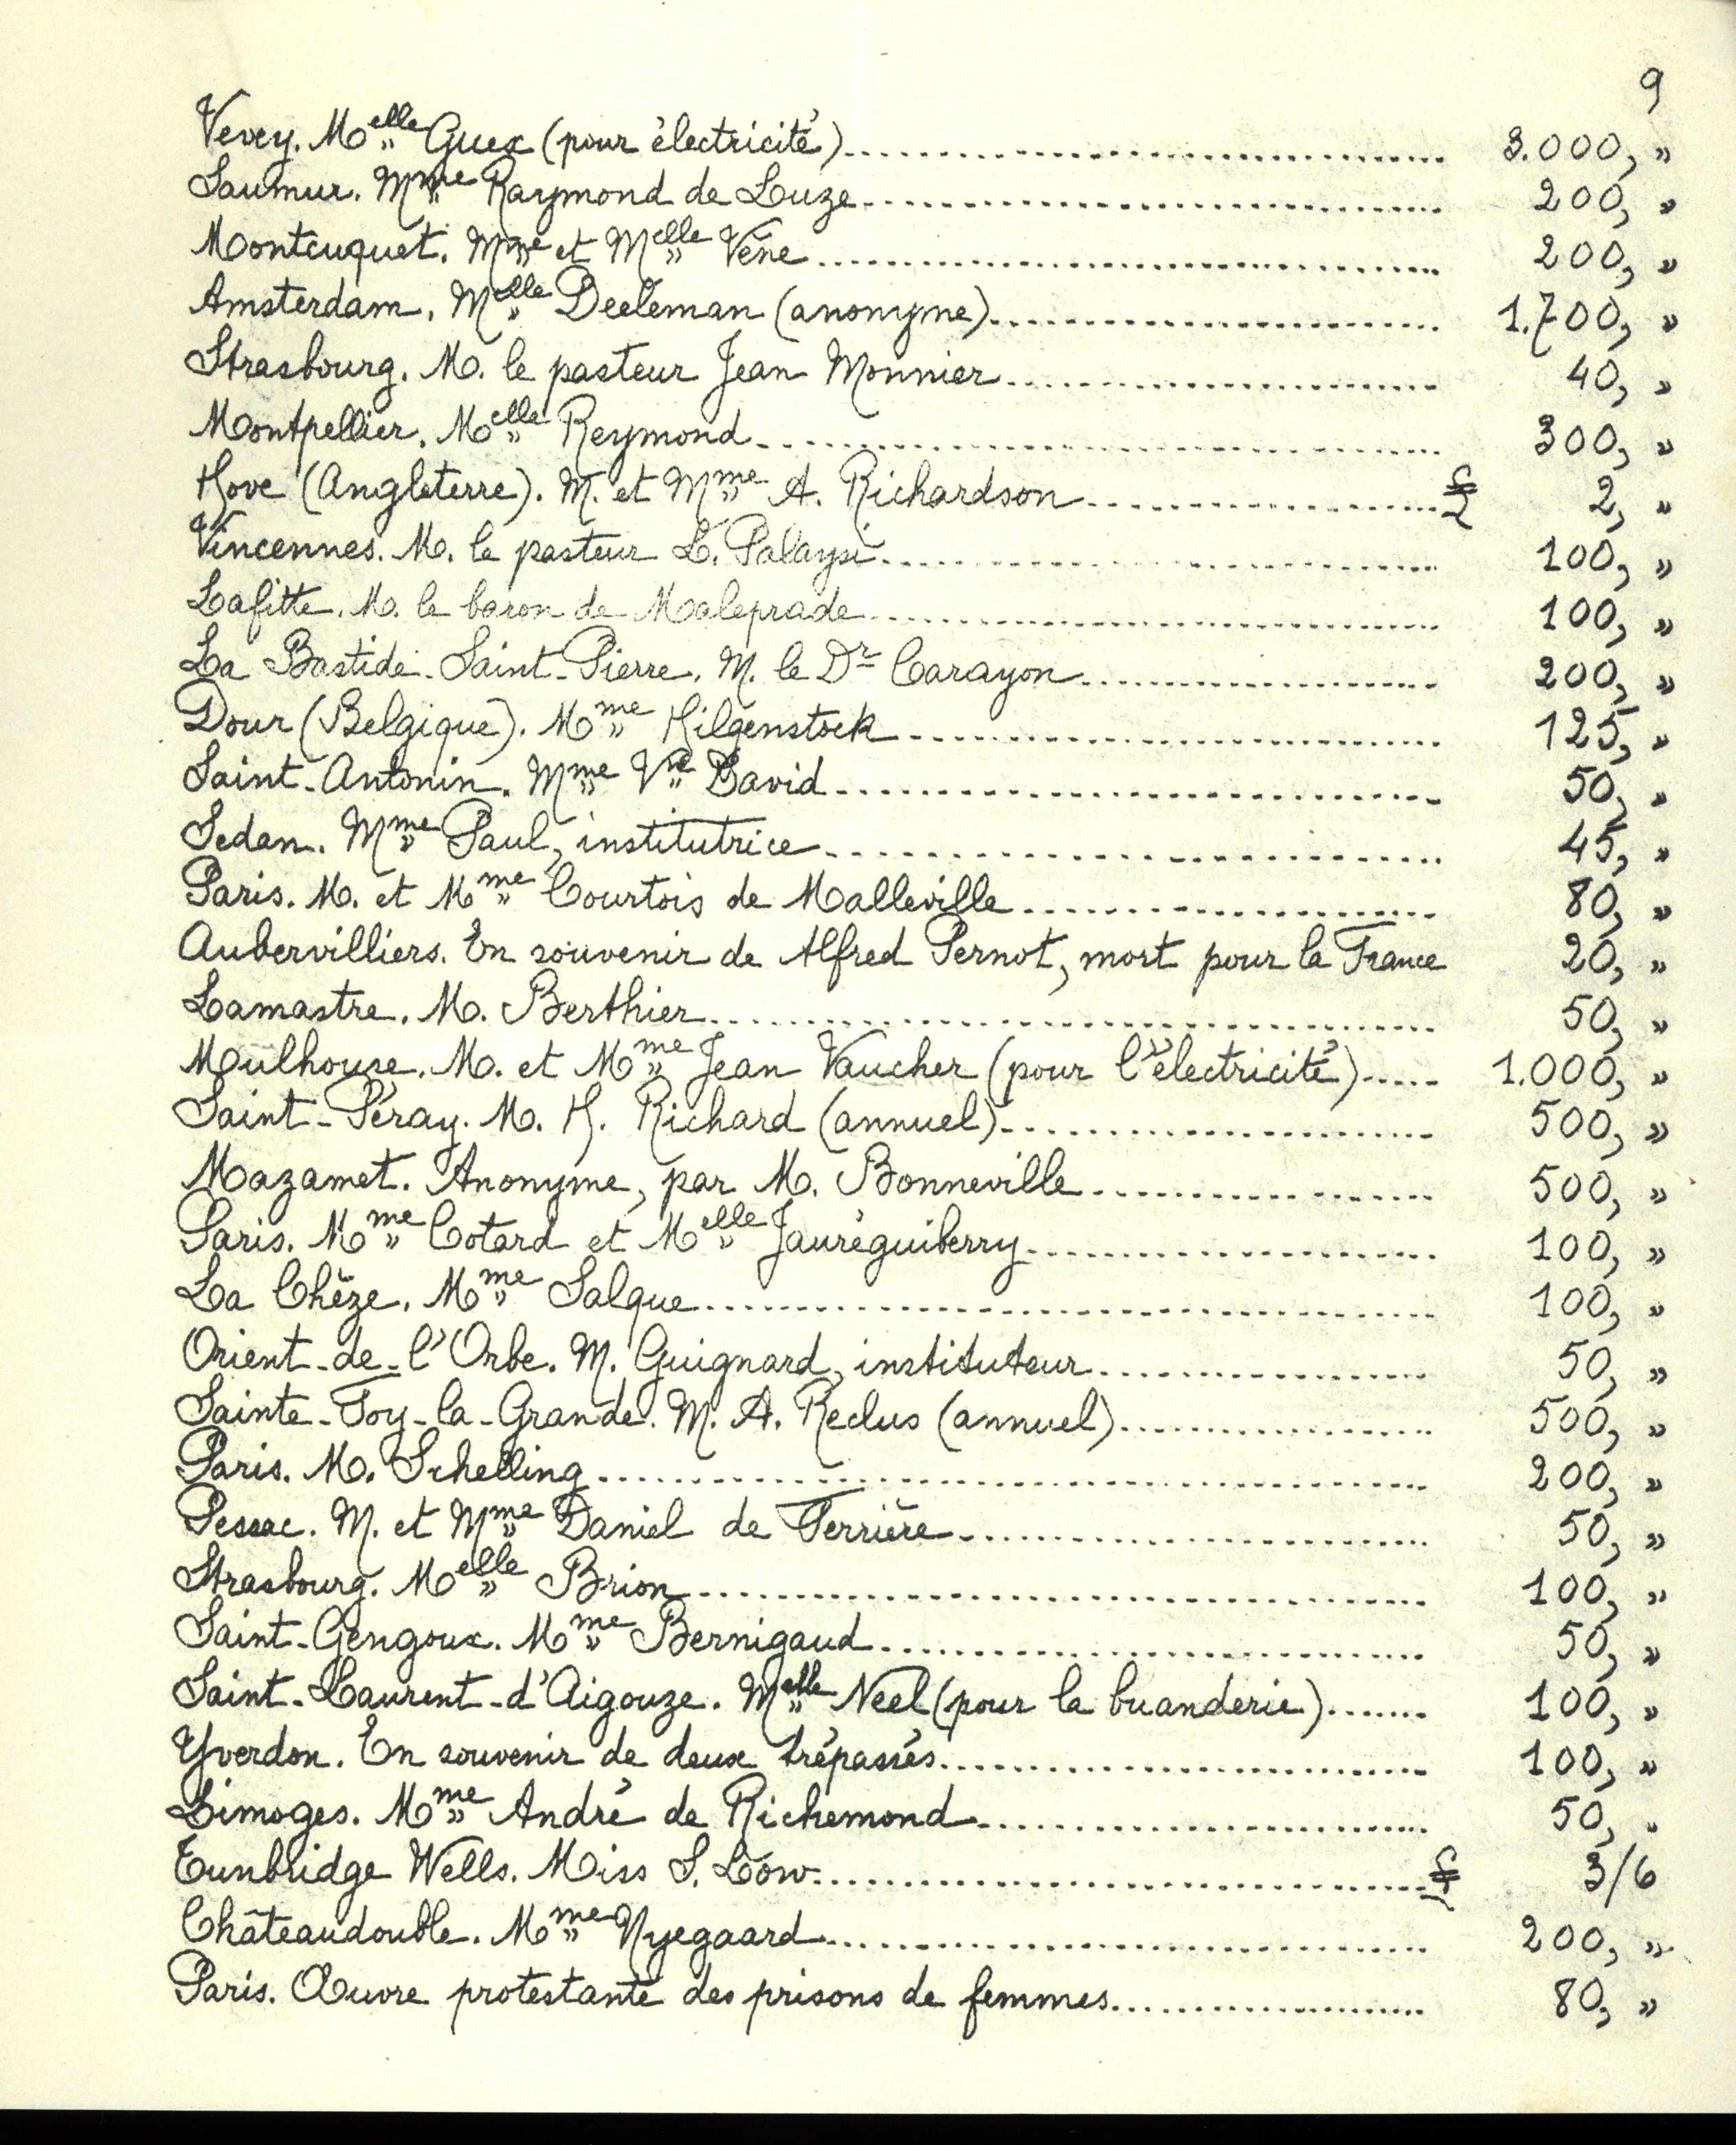 9
Vevey. Melle Guex (pour électricité)........ 3.000, "
Saumur. Mme Raymond de Luze........ 200, "
Montcuquet. Mme et Melle Vène........ 200, "
Amsterdam. Melle Deeleman (anonyme)........ 1.700, "
Strasbourg. M. le pasteur Jean Monnier........ 40, "
Montpellier. Melle Reymond........ 300, "
Hove (Angleterre). M. et Mme A. Richardson........ £ 2, "
Vincennes. M. le pasteur L. Palaysi........ 100, "
Lafitte. M. le baron de Maleprade........ 100, "
La Bastide-Saint-Pierre. M. le Dr Carayon........ 200, "
Dour (Belgique). Mme Hilgenstock........ 125, "
Saint-Antonin. Mme Vve David........ 50, "
Sedan. Mme Paul, institutrice........ 45, "
Paris. M. et Mme Courtois de Malleville........ 80, "
Aubervilliers. En souvenir de Alfred Pernot, mort pour la France 20, "
Lamastre. M. Berthier........ 50, "
Mulhouse. M. et Mme Jean Vaucher (pour l'électricité)..... 1.000, "
Saint-Péray. M. H. Richard (annuel)........ 500, "
Mazamet. Anonyme, par M. Bonneville........ 500, "
Paris. Mme Cotard et Melle Jauréguiberry........ 100, "
La Chèze. Mme Salque........ 100, "
Orient-de-l'Orbe. M. Guignard, instituteur........ 50, "
Sainte-Foy-la-Grande. M. A. Reclus (annuel)........ 500, "
Paris. M. Schelling........ 200, "
Pessac. M. et Mme Daniel de Ferrière........ 50, "
Strasbourg. Melle Brion........ 100, "
Saint-Gengoux. Mme Bernigaud........ 50, "
Saint-Laurent-d'Aigouze. Melle Néel (pour la buanderie)....... 100, "
Yverdon. En souvenir de deux trépassés........ 100, "
Limoges. Mme André de Richemond........ 50, "
Tunbridge Wells. Miss S. Low........ £ 3/6
Châteaudouble. Mme Nyegaard........ 200, "
Paris. Œuvre protestante des prisons de femmes........ 80, "